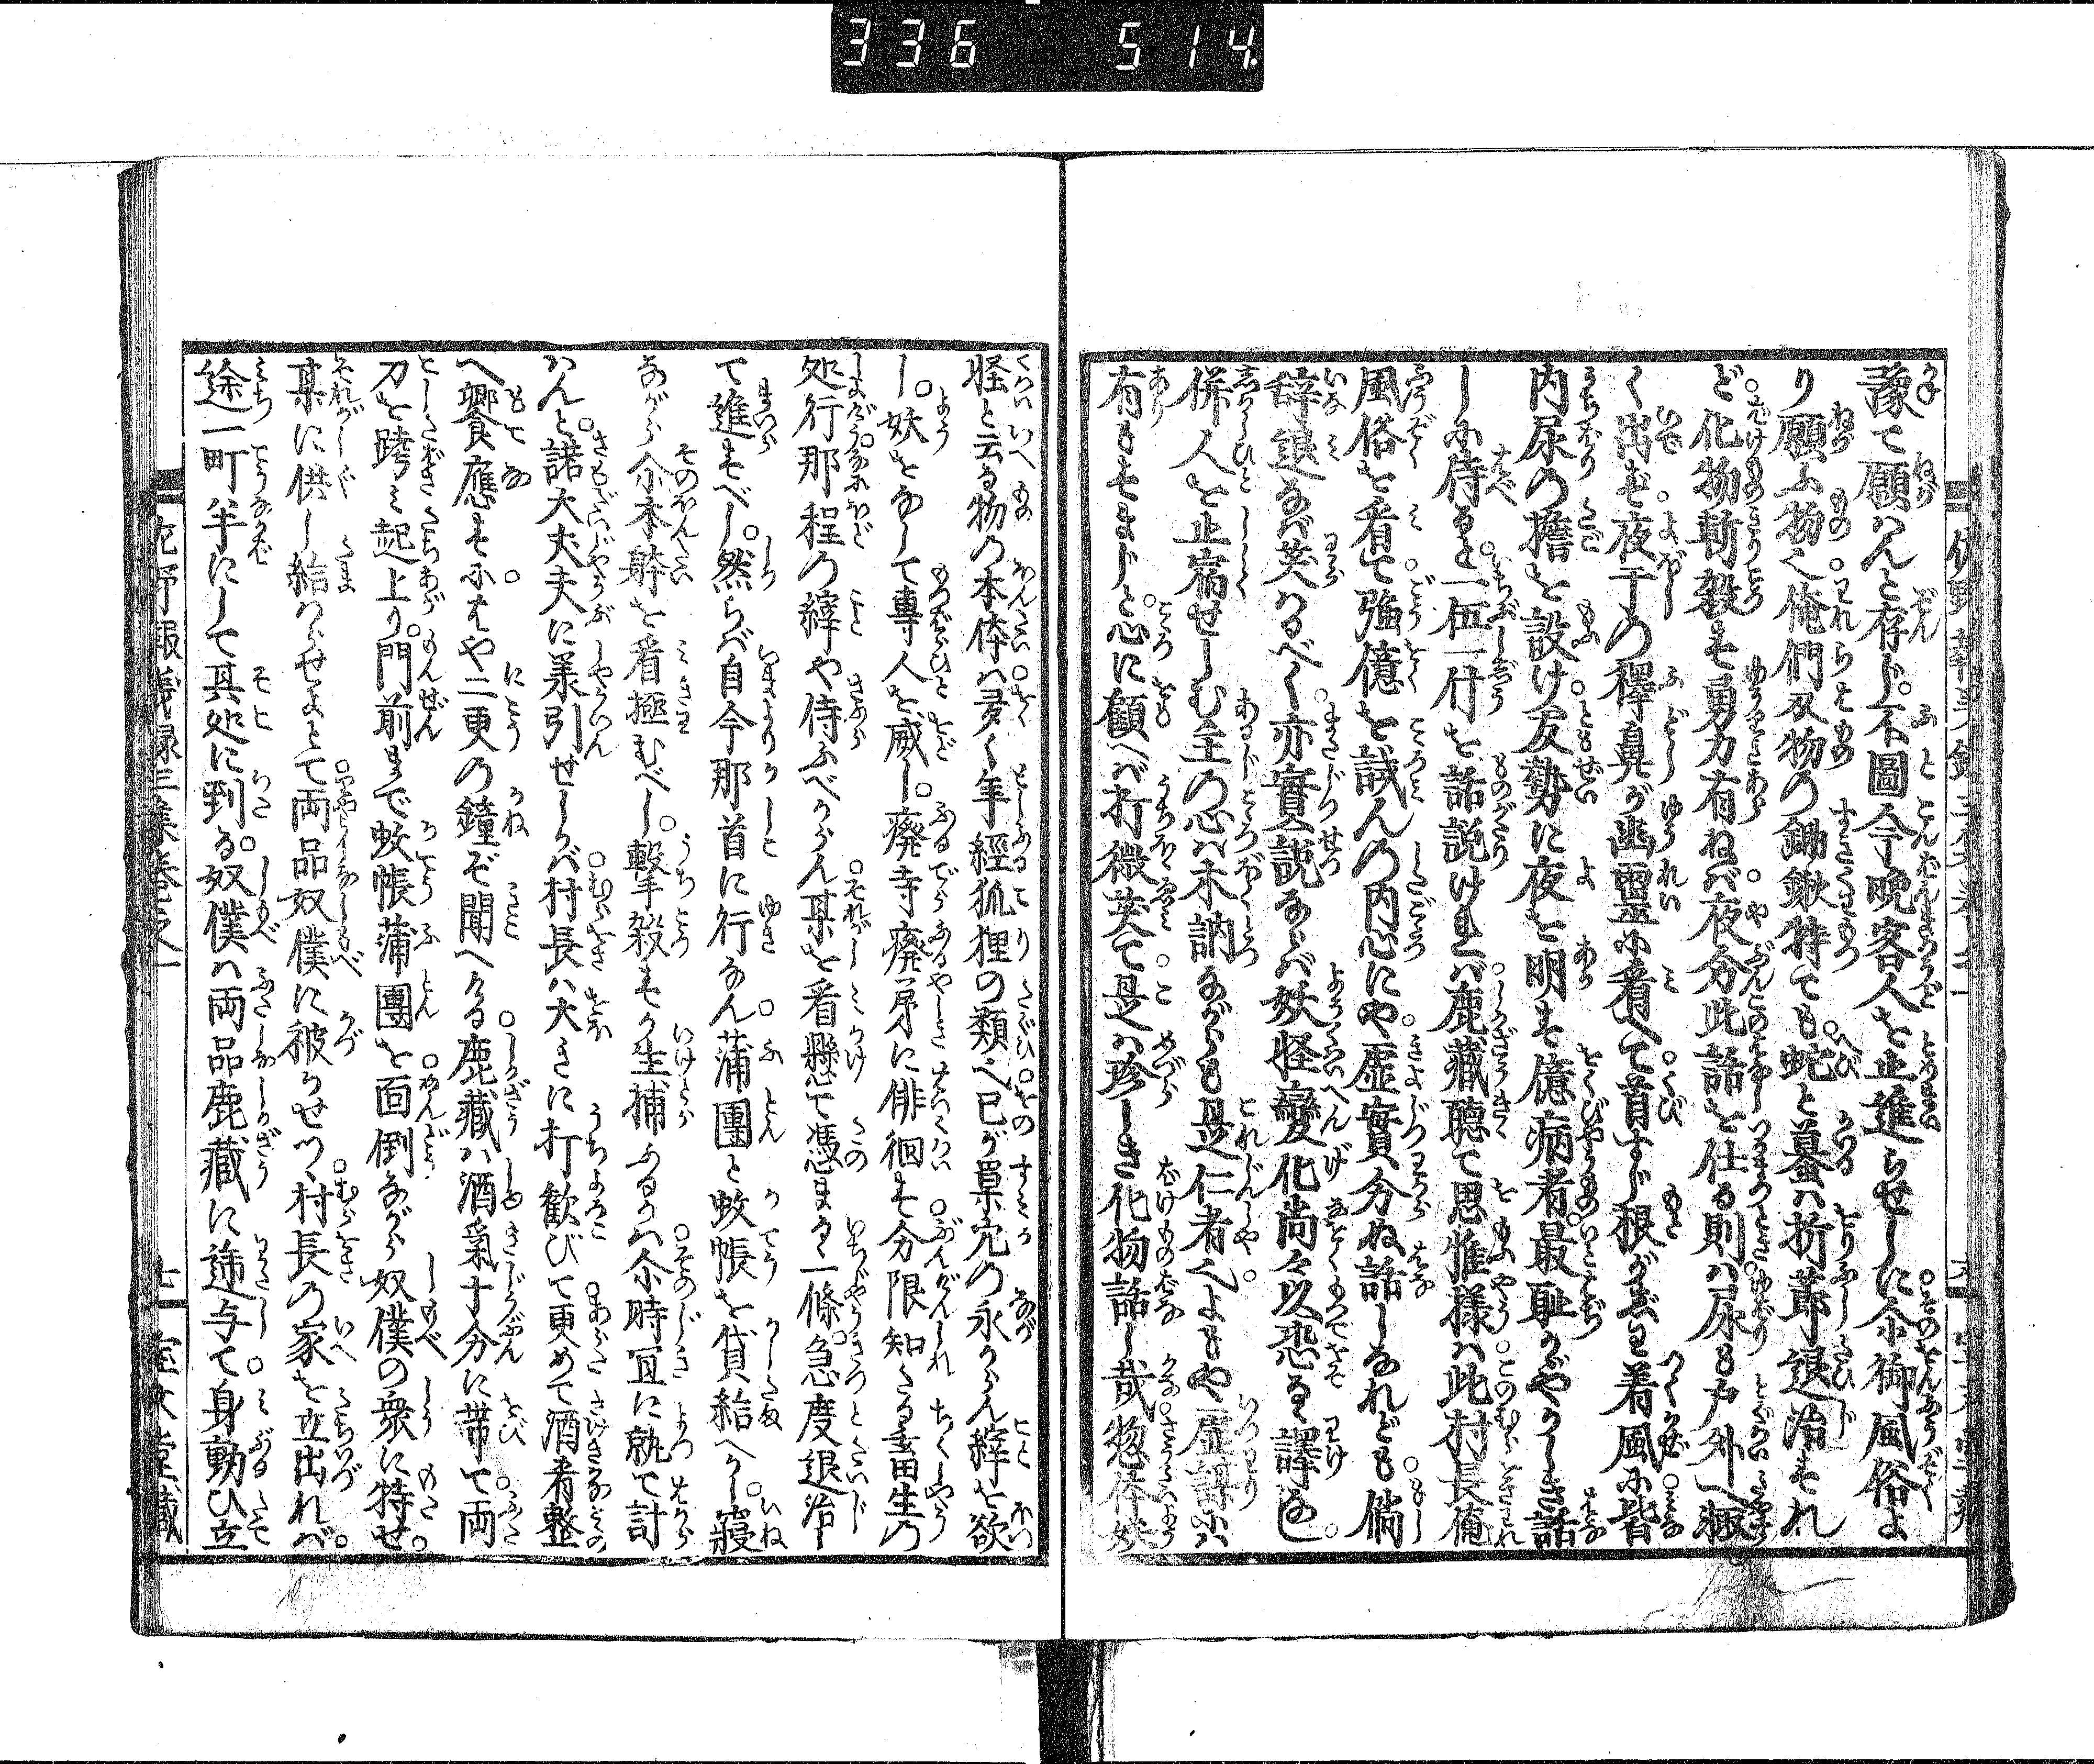 336 514
豫て願はんと存じ。不圖今晩客人を止進らせしに尒御風俗よ
り願ふ物也。俺們刄物の鋤鍬特ても。蛇と蟇は折節退治すれ
ど。化物斬殺す勇力有ねば。夜分此話を仕る則は。尿も戸外へ極
く出ず。夜干の褌鼻が幽霊に看へて。首すじ根がぞゝ着風に。皆
内尿の擔を設け。友勢に夜を明す臆病者。最恥かやかしき話
しに侍ると。一伍一什を話説ければ。鹿藏聴て思惟様。此村長俺
風俗を看て。強億を試んの内心にや。虚實分ぬ話しなれども。倘
辞退なば笑はるべく。亦實説ならば妖怪變化尚々以恐るゝ譯なし。
併人を止宿せしむ主の心は未訥ながらも是仁者也。よもや虚謀には
有もすまじと。心に顧へば打微笑て。是は珍しき化物話し哉。惣体妖
怪と云る物の本体は。多く年經狐狸の類也。己が巣穴の永からん縡を欲
し。妖をなして專人を威し。癈寺癈第に徘徊す。分限知たる畜生の
処行。那程の縡や侍ふべからん。某を看懸て憑まるゝ一條。急度退治
て進すべし。然らば自今那首に行なん。蒲團と蚊帳を貸給へかし。寝
ながら尒本躰を看極むべし。撃殺すか生捕ふるか。尒時冝に執て計
はんと。諾大夫夫に羕引せしかば。村長は大きに打歓びて。更めて酒肴整
へ饗應すに。はや二更の鐘ぞ聞へける。鹿藏は酒氣十分に帯て。両
刀を跨ミ起上り。門前まで蚊帳蒲團を。面倒ながら奴僕の衆に特せ。
某に供し給はらせよとて。両品奴僕に被らせつゝ。村長の家を立出れば。
途一町半にして其処に到る。奴僕は両品鹿藏に逓与て。身動ひ立